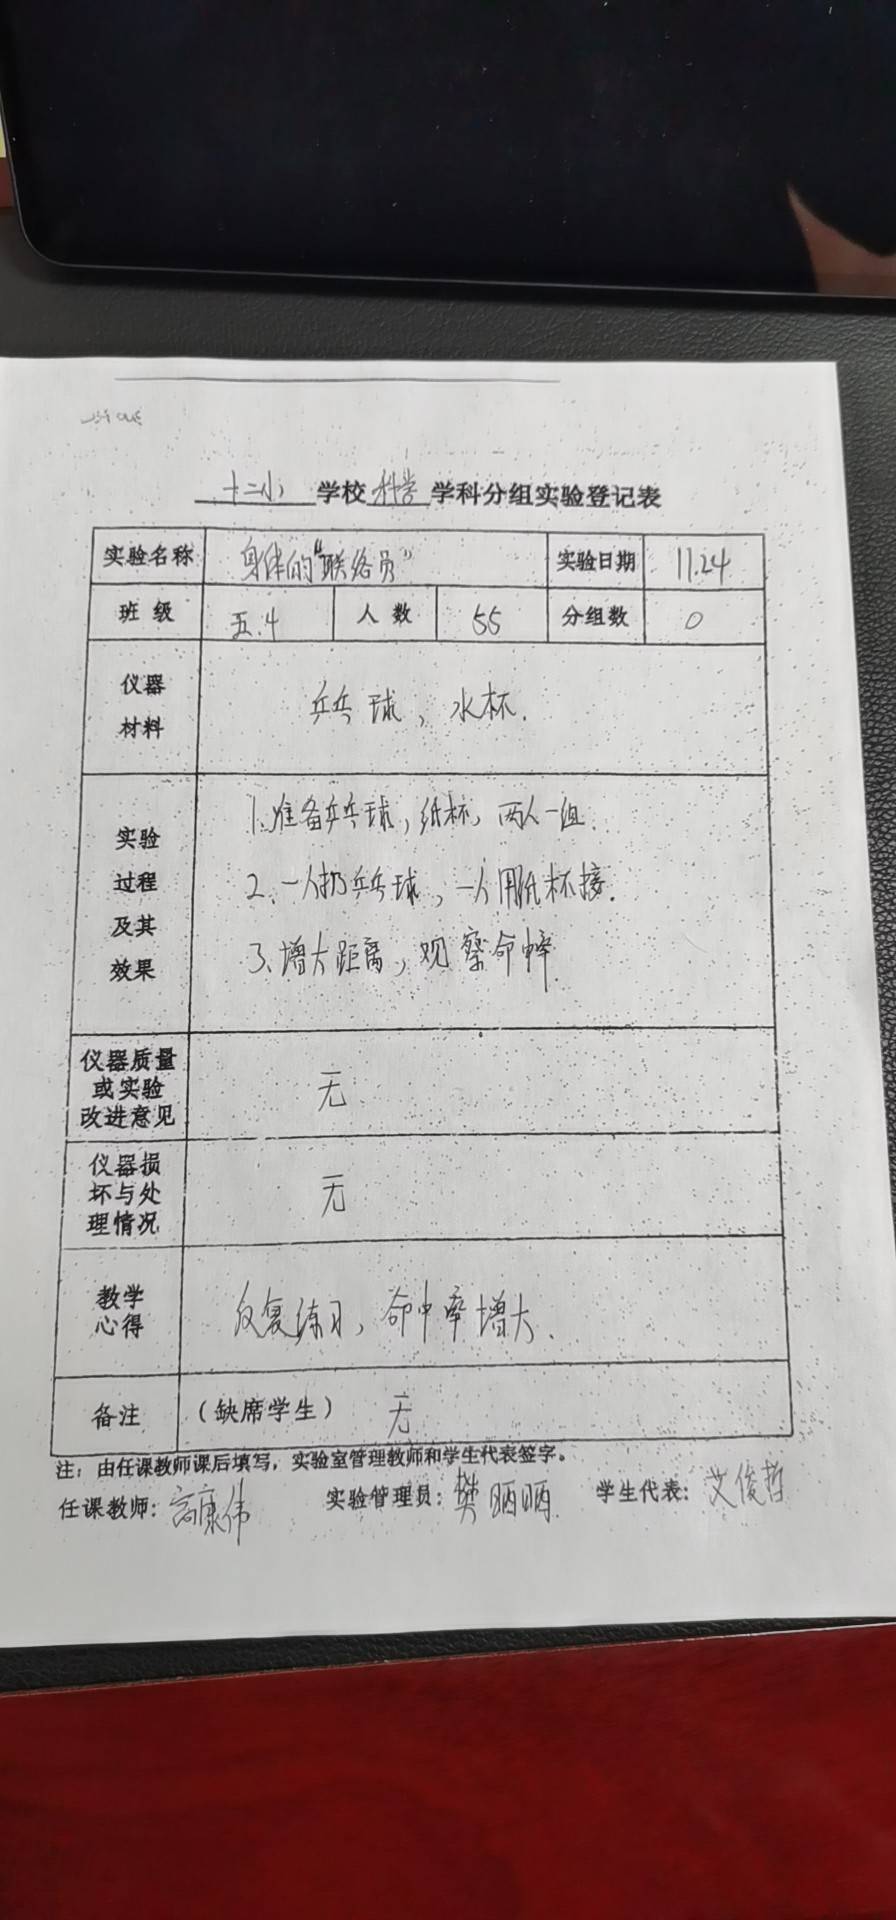 十二小 学校 科学 学科分组实验登记表
实验名称 身体的“联络员” 实验日期 11.24
班 级 五.4 人 数 55 分组数 0
仪器
材料
乒乓球，水杯.
实验
过程
及其
效果
1.准备乒乓球，纸杯，两人一组.
2、一人扔乒乓球，一人用纸杯接.
3、增大距离，观察命中率.
仪器质量
或实验
改进意见
无
仪器损
坏与处
理情况
无
教学
心得
反复练习，命中率增大.
备注 （缺席学生） 无
注：由任课教师课后填写，实验室管理教师和学生代表签字。
任课教师：高康伟 实验管理员：樊晒晒 学生代表：艾俊哲